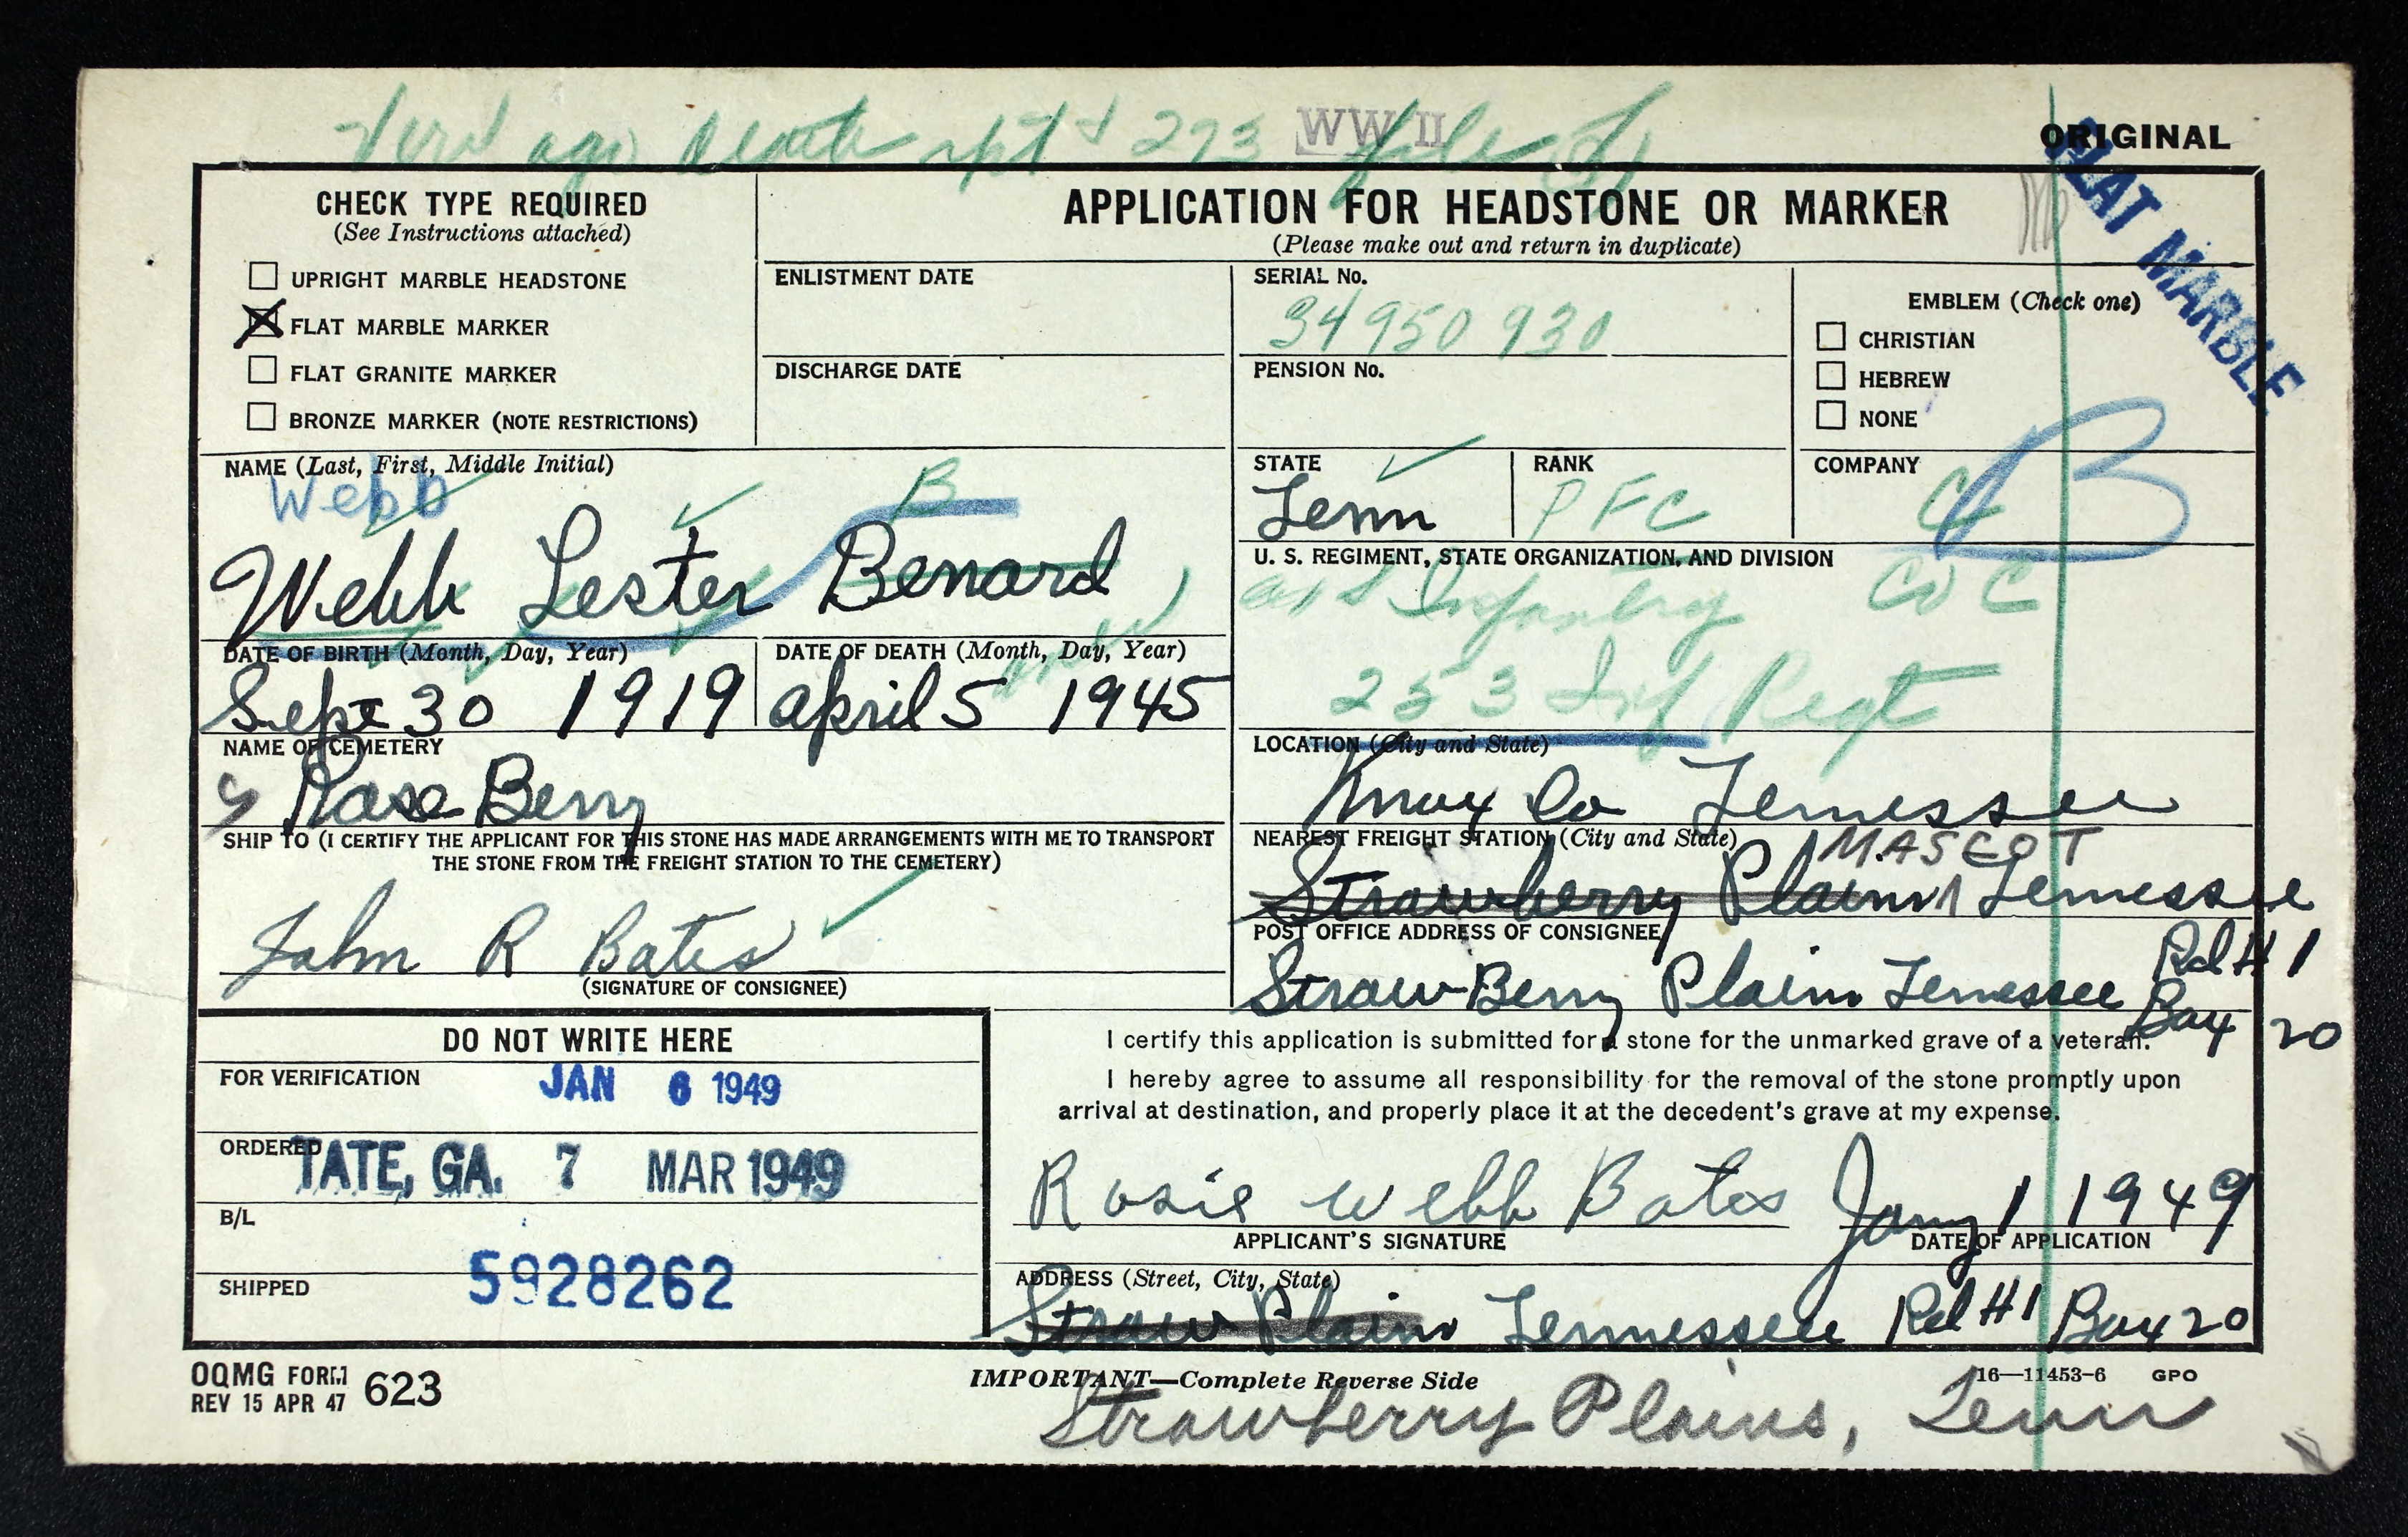 death rpt & 293 file
WW II
ORIGINAL
FLAT MARBLE
CHECK TYPE REQUIRED
(See Instructions attached)
UPRIGHT MARBLE HEADSTONE
X FLAT MARBLE MARKER
FLAT GRANITE MARKER
BRONZE MARKER (NOTE RESTRICTIONS)
APPLICATION FOR HEADSTONE OR MARKER
(Please make out and return in duplicate)
ENLISTMENT DATE
DISCHARGE DATE
SERIAL No.
34950930
PENSION No.
EMBLEM (Check one)
CHRISTIAN
HEBREW
NONE
NAME (Last, First, Middle Initial)
Webb B
Webb Lester Benard
STATE
Tenn
RANK
PFC
COMPANY
C B
U. S. REGIMENT, STATE ORGANIZATION, AND DIVISION
Infantry Co C
253 Inf Regt
DATE OF BIRTH (Month, Day, Year)
Sept 30 1919
DATE OF DEATH (Month, Day, Year)
April 5 1945
NAME OF CEMETERY
Rose Berry
LOCATION (City and State)
Knox Co Tennessee
SHIP TO (I CERTIFY THE APPLICANT FOR THIS STONE HAS MADE ARRANGEMENTS WITH ME TO TRANSPORT
THE STONE FROM THE FREIGHT STATION TO THE CEMETERY)
John R Bates
(SIGNATURE OF CONSIGNEE)
NEAREST FREIGHT STATION (City and State)
MASCOT
Strawberry Plains Tennessee
POST OFFICE ADDRESS OF CONSIGNEE
Straw Berry Plains Tennessee Rd #1
Box 20
DO NOT WRITE HERE
FOR VERIFICATION
JAN 6 1949
ORDERED
TATE, GA. 7 MAR 1949
B/L
5928262
SHIPPED
I certify this application is submitted for a stone for the unmarked grave of a veteran.
I hereby agree to assume all responsibility for the removal of the stone promptly upon
arrival at destination, and properly place it at the decedent's grave at my expense.
Rosie Webb Bates Jany 1 1949
APPLICANT'S SIGNATURE
DATE OF APPLICATION
ADDRESS (Street, City, State)
Straw Plains Tennessee Rd #1 Box 20
OQMG FORM 623
REV 15 APR 47
IMPORTANT—Complete Reverse Side
16—11453-6 GPO
Strawberry Plains, Tenn